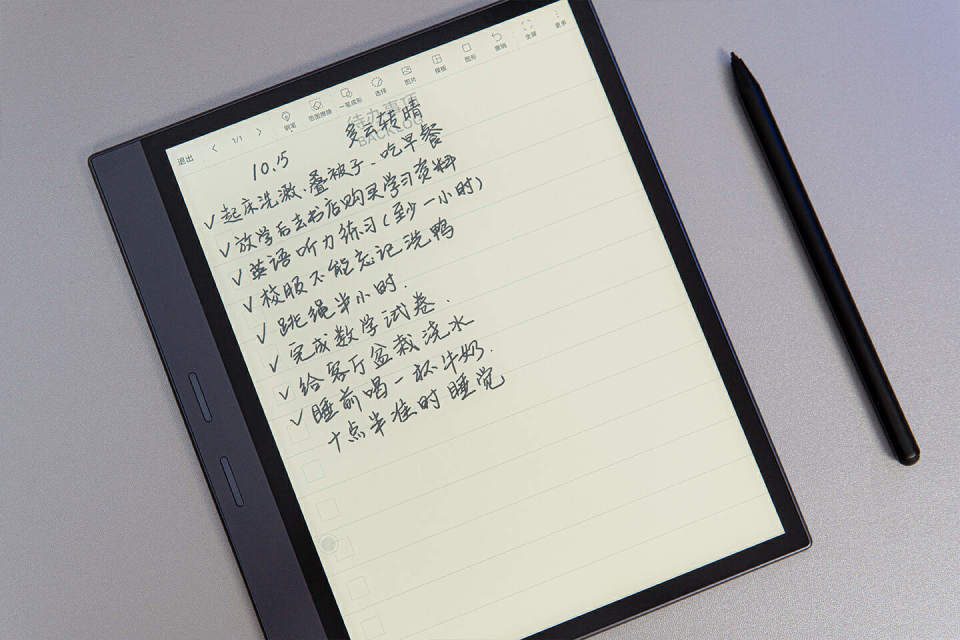 退出 < 1/1 > 钢笔 局部擦除 一笔成形 选择 图片 模板 图形 撤销 全屏 更多
待办事项
BACKLOG
10.15 多云转晴
✓起床洗漱、叠被子、吃早餐
✓放学后去书店购买学习资料
✓英语听力练习(至少一小时)
✓校服不能忘记洗鸭
✓跳绳半小时.
✓完成数学试卷.
✓给客厅盆栽浇水
✓睡前喝一杯牛奶.
十点半准时睡觉